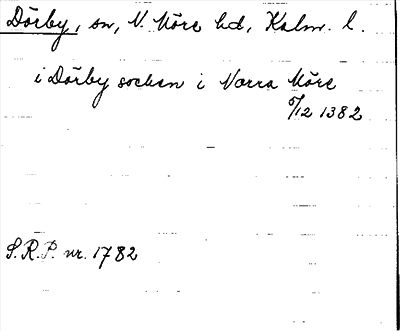 Dörby, sn, N. Möre hd, Kalm. l.
i Dörby socken i Norra Möre
5/12 1382
S.R.P. nr. 1782